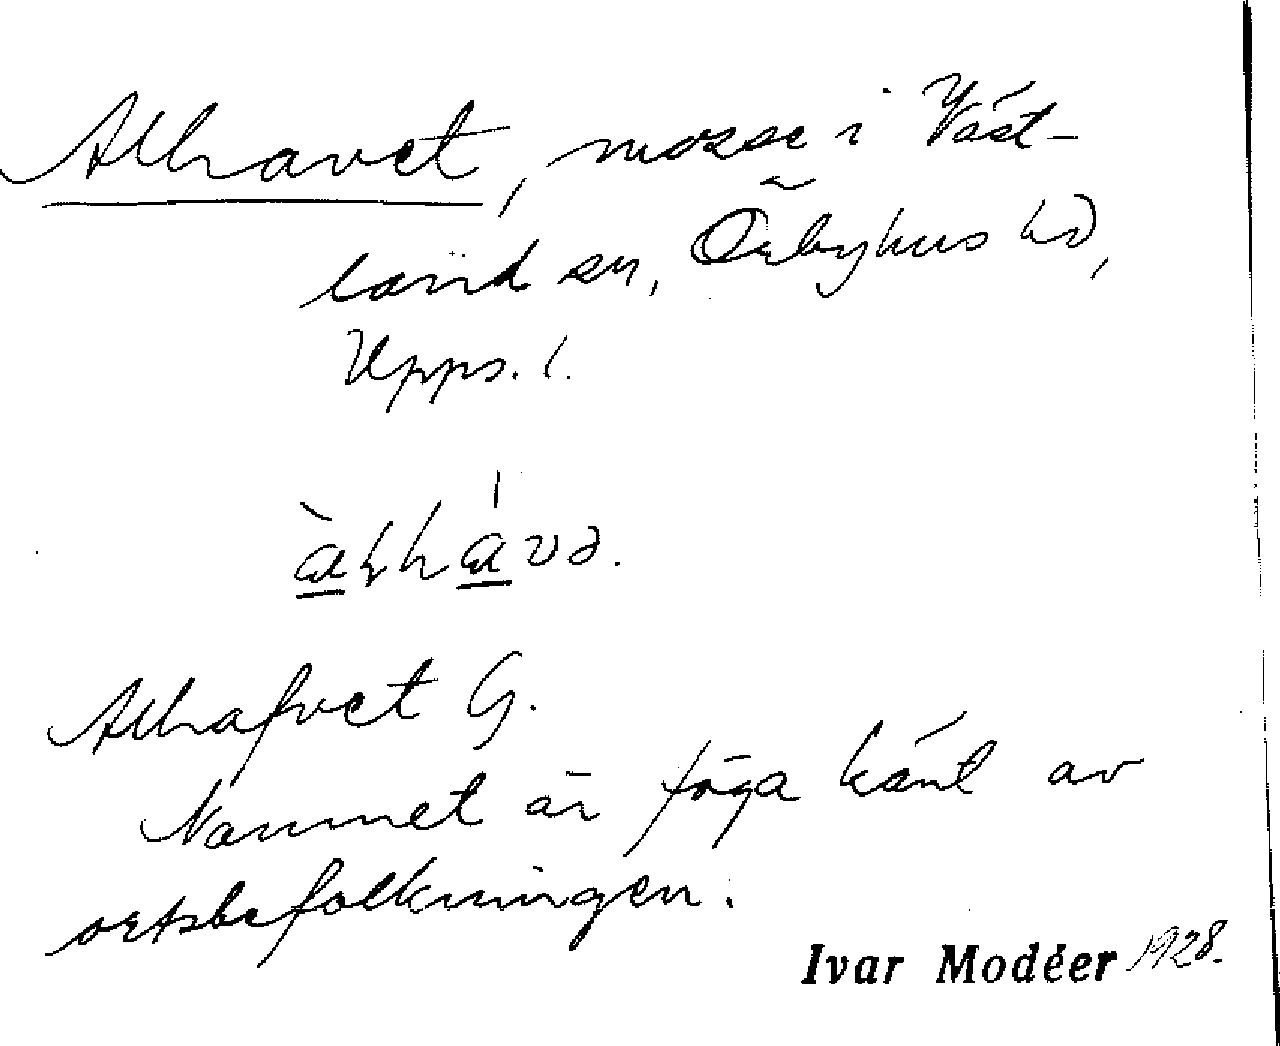 Alhavet, mosse i Väst-
land sn, Örbyhus hd,
Upps. l.
Alhafvet G.
Namnet är föga känt av
ortsbefolkningen.
Ivar Modéer 1928.